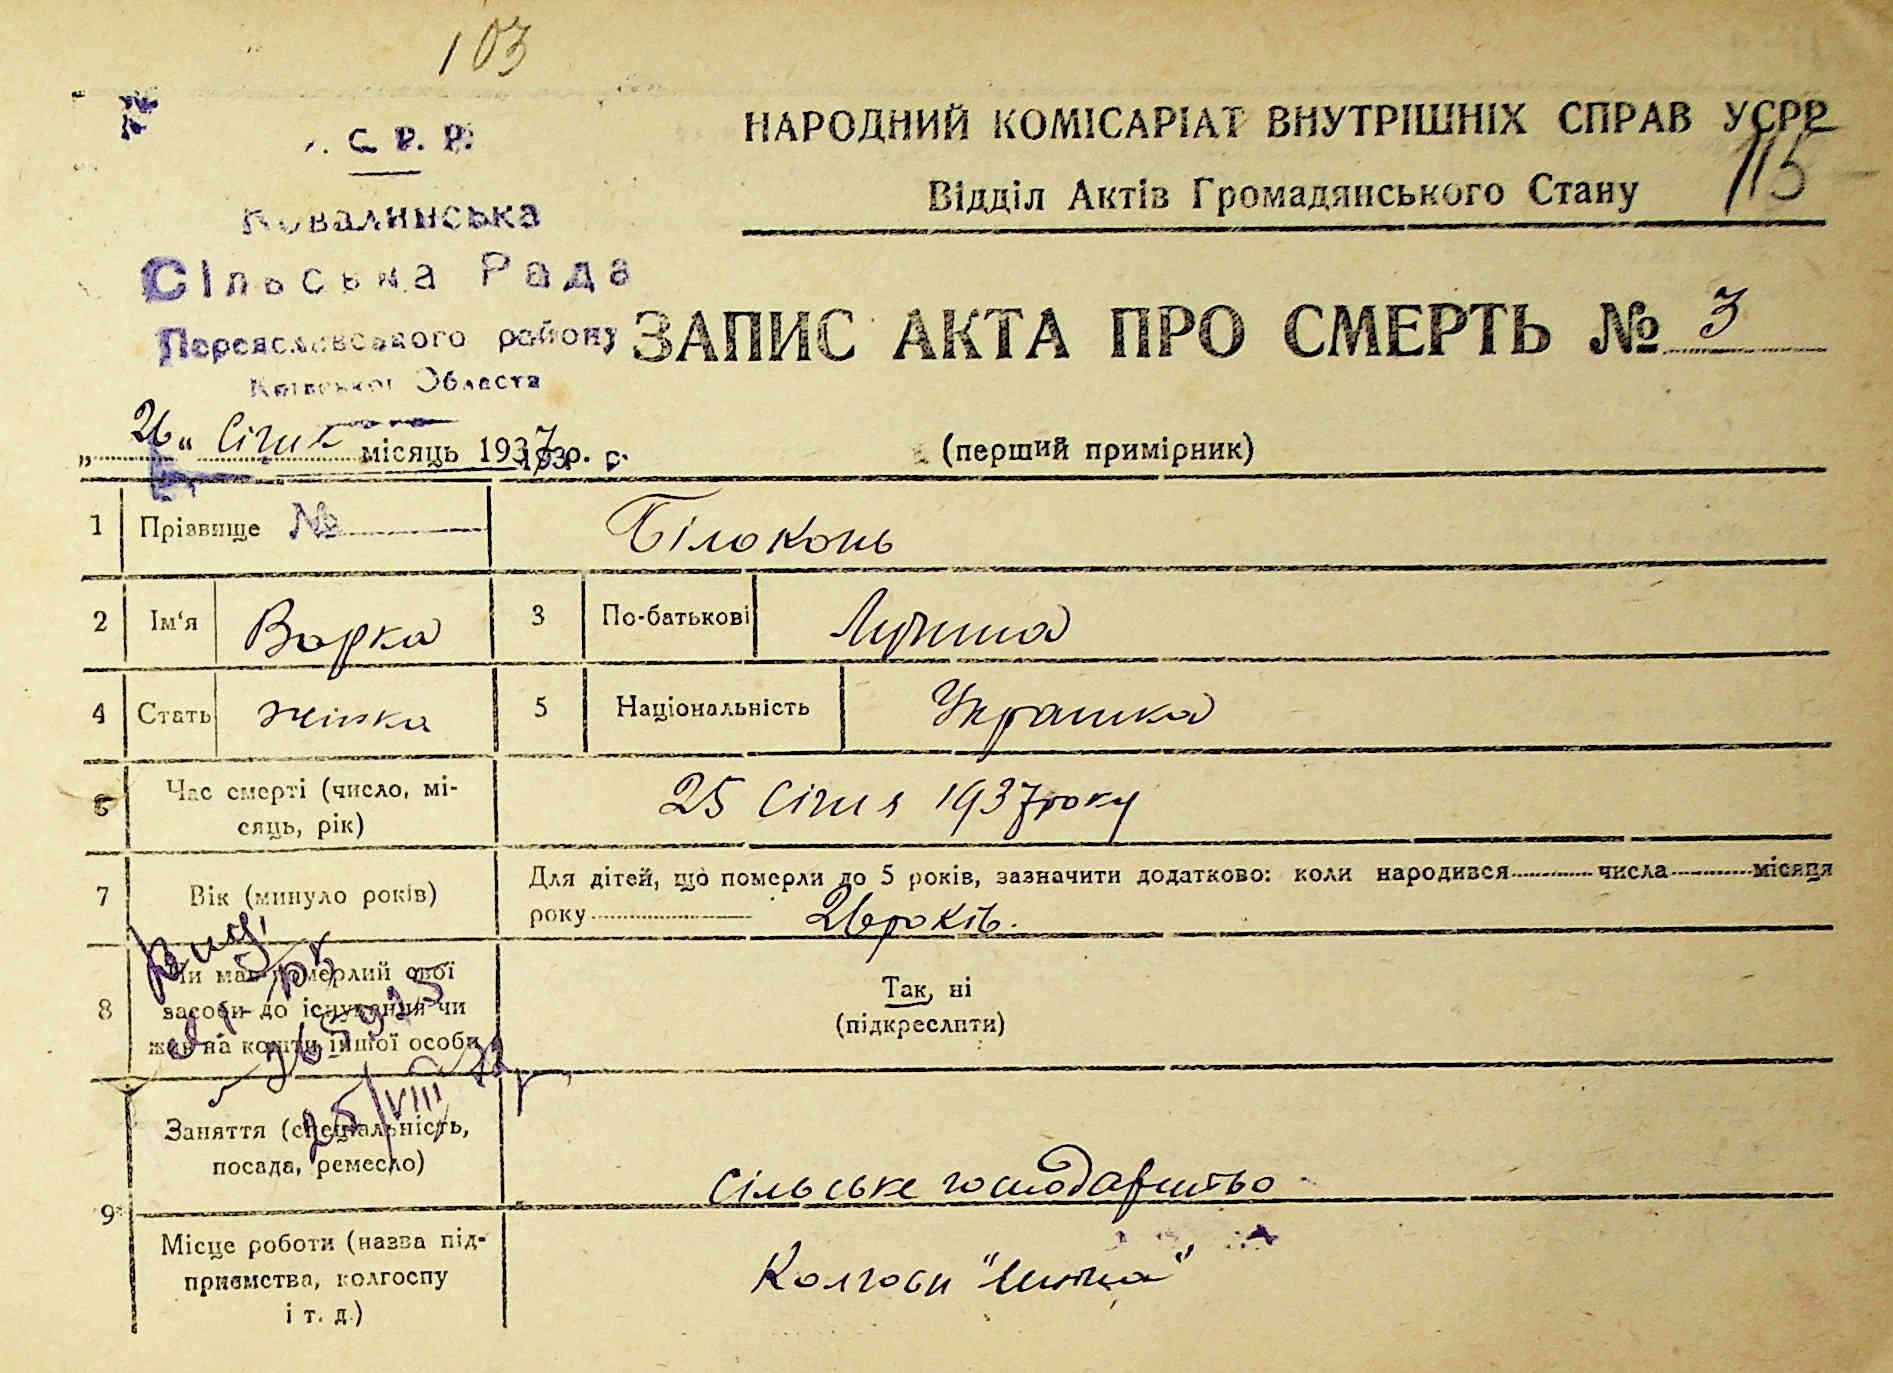 103
С. Р. Р.
Ковалинська
Сільська Рада
Переяславського району
Київської Области
НАРОДНИЙ КОМІСАРІАТ ВНУТРІШНІХ СПРАВ УСРР
115
Відділ Актів Громадянського Стану
ЗАПИС АКТА ПРО СМЕРТЬ № 3
„26“ Січня місяць 1937 р.
(перший примірник)
1 Прізвище № Білоконь
2 Ім'я Варка 3 По-батькові
4 Стать жінка 5 Національність Українка
6 Час смерті (число, мі-
сяць, рік) 25 Січня 1937 року
7 Вік (минуло років) Для дітей, що померли до 5 років, зазначити додатково: коли народився числа місяця
року 26 років.
8 Чи мав померлий свої
засоби до існування чи
жив на кошти іншої особи
Так, ні
(підкреслити)
25/VIII
9 Заняття (спеціальність,
посада, ремесло) Сільське господарство
Місце роботи (назва під-
приємства, колгоспу
і т. д.) Колгосп